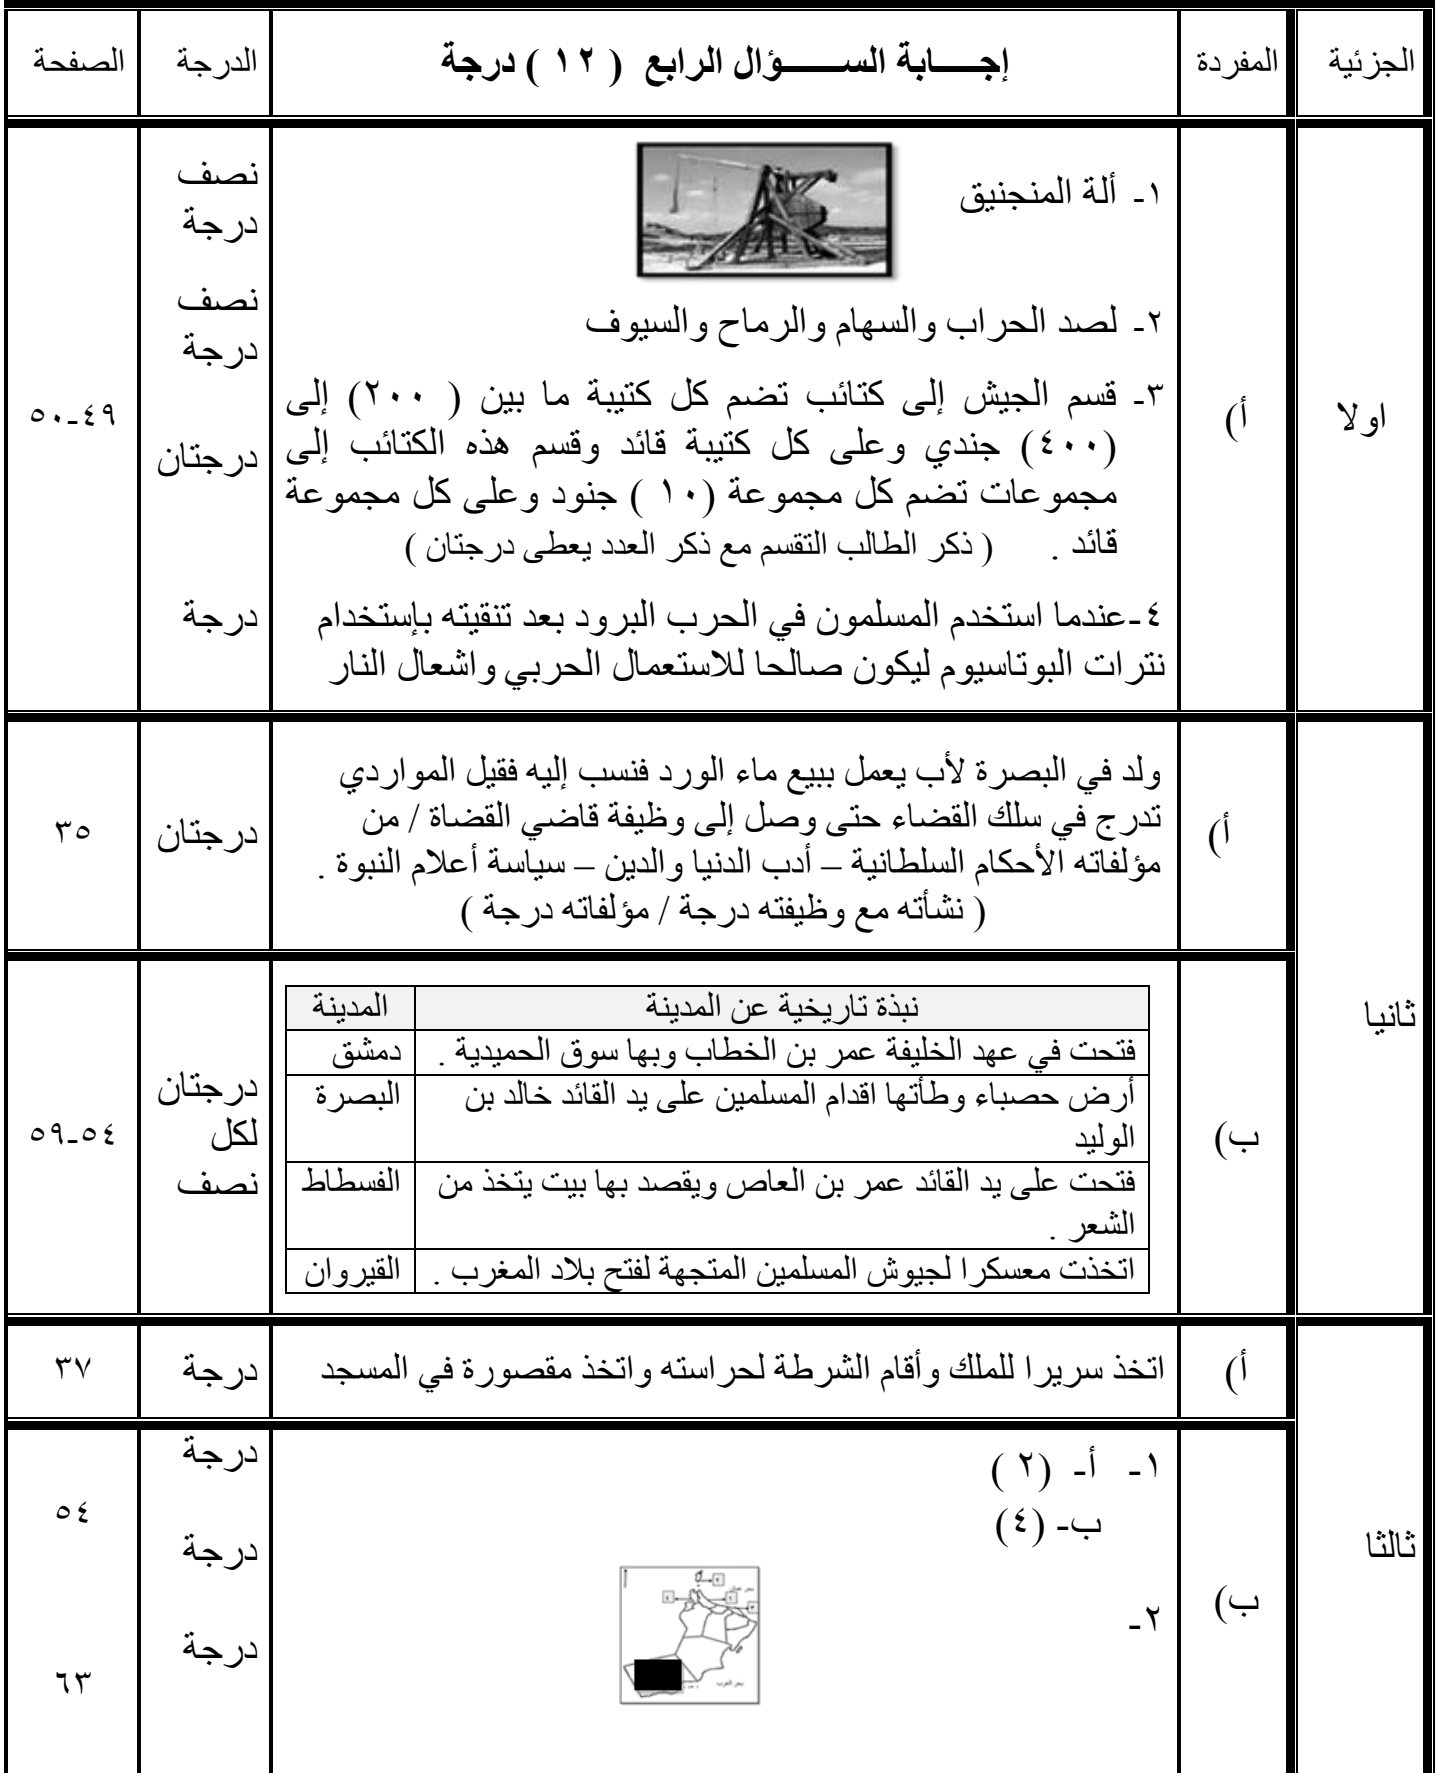 الجزئية المفردة إجـــابة الســـــؤال الرابع ( ١٢ ) درجة الدرجة الصفحة
اولا أ) ٤٩-٥٠
١- ألة المنجنيق
نصف
درجة
٢- لصد الحراب والسهام والرماح والسيوف
نصف
درجة
٣- قسم الجيش إلى كتائب تضم كل كتيبة ما بين ( ٢٠٠) إلى
(٤٠٠) جندي وعلى كل كتيبة قائد وقسم هذه الكتائب إلى
مجموعات تضم كل مجموعة (١٠ ) جنود وعلى كل مجموعة
قائد . ( ذكر الطالب التقسم مع ذكر العدد يعطى درجتان )
درجتان
٤-عندما استخدم المسلمون في الحرب البرود بعد تنقيته بإستخدام
نترات البوتاسيوم ليكون صالحا للاستعمال الحربي واشعال النار
درجة
ثانيا
أ)
ولد في البصرة لأب يعمل ببيع ماء الورد فنسب إليه فقيل المواردي
تدرج في سلك القضاء حتى وصل إلى وظيفة قاضي القضاة / من
مؤلفاته الأحكام السلطانية – أدب الدنيا والدين – سياسة أعلام النبوة .
( نشأته مع وظيفته درجة / مؤلفاته درجة )
درجتان
٣٥
ب)
نبذة تاريخية عن المدينة المدينة
فتحت في عهد الخليفة عمر بن الخطاب وبها سوق الحميدية . دمشق
أرض حصباء وطأتها اقدام المسلمين على يد القائد خالد بن البصرة
الوليد
فتحت على يد القائد عمر بن العاص ويقصد بها بيت يتخذ من الفسطاط
الشعر .
اتخذت معسكرا لجيوش المسلمين المتجهة لفتح بلاد المغرب . القيروان
درجتان
لكل
نصف
٥٤-٥٩
ثالثا
أ) اتخذ سريرا للملك وأقام الشرطة لحراسته واتخذ مقصورة في المسجد درجة ٣٧
ب)
١- أ- (٢ )
ب- (٤)
درجة
درجة
٥٤
٢-
بحر العرب
درجة
٦٣